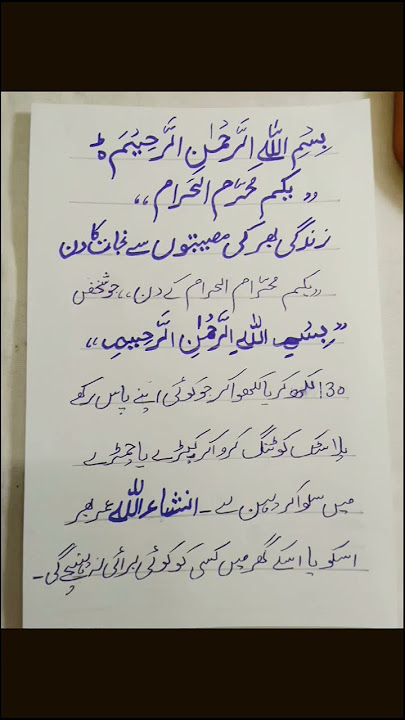 بِسْمِ اللّٰهِ الرَّحْمٰنِ الرَّحِیْمِ ط
,, یکم محرّم الحَرام ,,
زندگی بھر کی مصیبتوں سے نجات کا دن
,, یکم محرّام الحرام کے دن ,, جو شخص
,, بِسْمِ اللّٰهِ الرَّحْمٰنِ الرَّحِیْمِ ,,
130 لکھ کر یا لکھوا کر جو کوئی اپنے پاس رکھے
پلاسٹک کوٹنگ کروا کر کپڑے یا چمڑے
میں سلوا کر پہن لے ۔ انشاءاللّٰه عمر بھر
اسکو یا اسکے گھر میں کسی کو کوئی برائی نہ پہنچے گی ۔